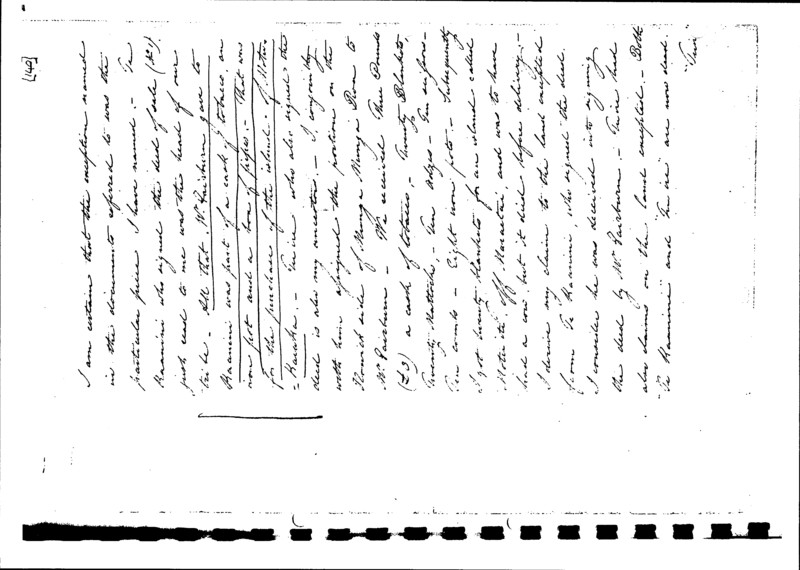 [140]
I am certain that the exception named
in the documents referred to was the
particular piece I have named. - Te
Raamini who signed the deed of sale (No 1).
just read to me was the head of our
tribe - All that Mr Fairburn gave to
Raamini was part of a cask of tobacco an
iron pot and a box of pipes. - That was
for the purchase of the island of Motu
- Karaka. - who also signed the
deed is also my ancestor. - I conjointly
with him assigned the portion on the
side of Munga Munga Roa to
Mr Fairburn - We received Three Pounds
(£3) a cask of tobacco, - Twenty Blankets,
Twenty Mattocks, - Ten Adzes - Ten
Ten combs - Eight iron pots. - Subsequently
I got twenty blankets for an island called
off Maraetai, and was to have
had a cow, but it died before delivery. -
I derive my claim to the land excepted
from Te Raamini, who signed the deed.
I consider he was deceived into signing
the deed by Mr Fairburn. - had
also claims on the land excepted. - Both
Te Raamini and are now dead.